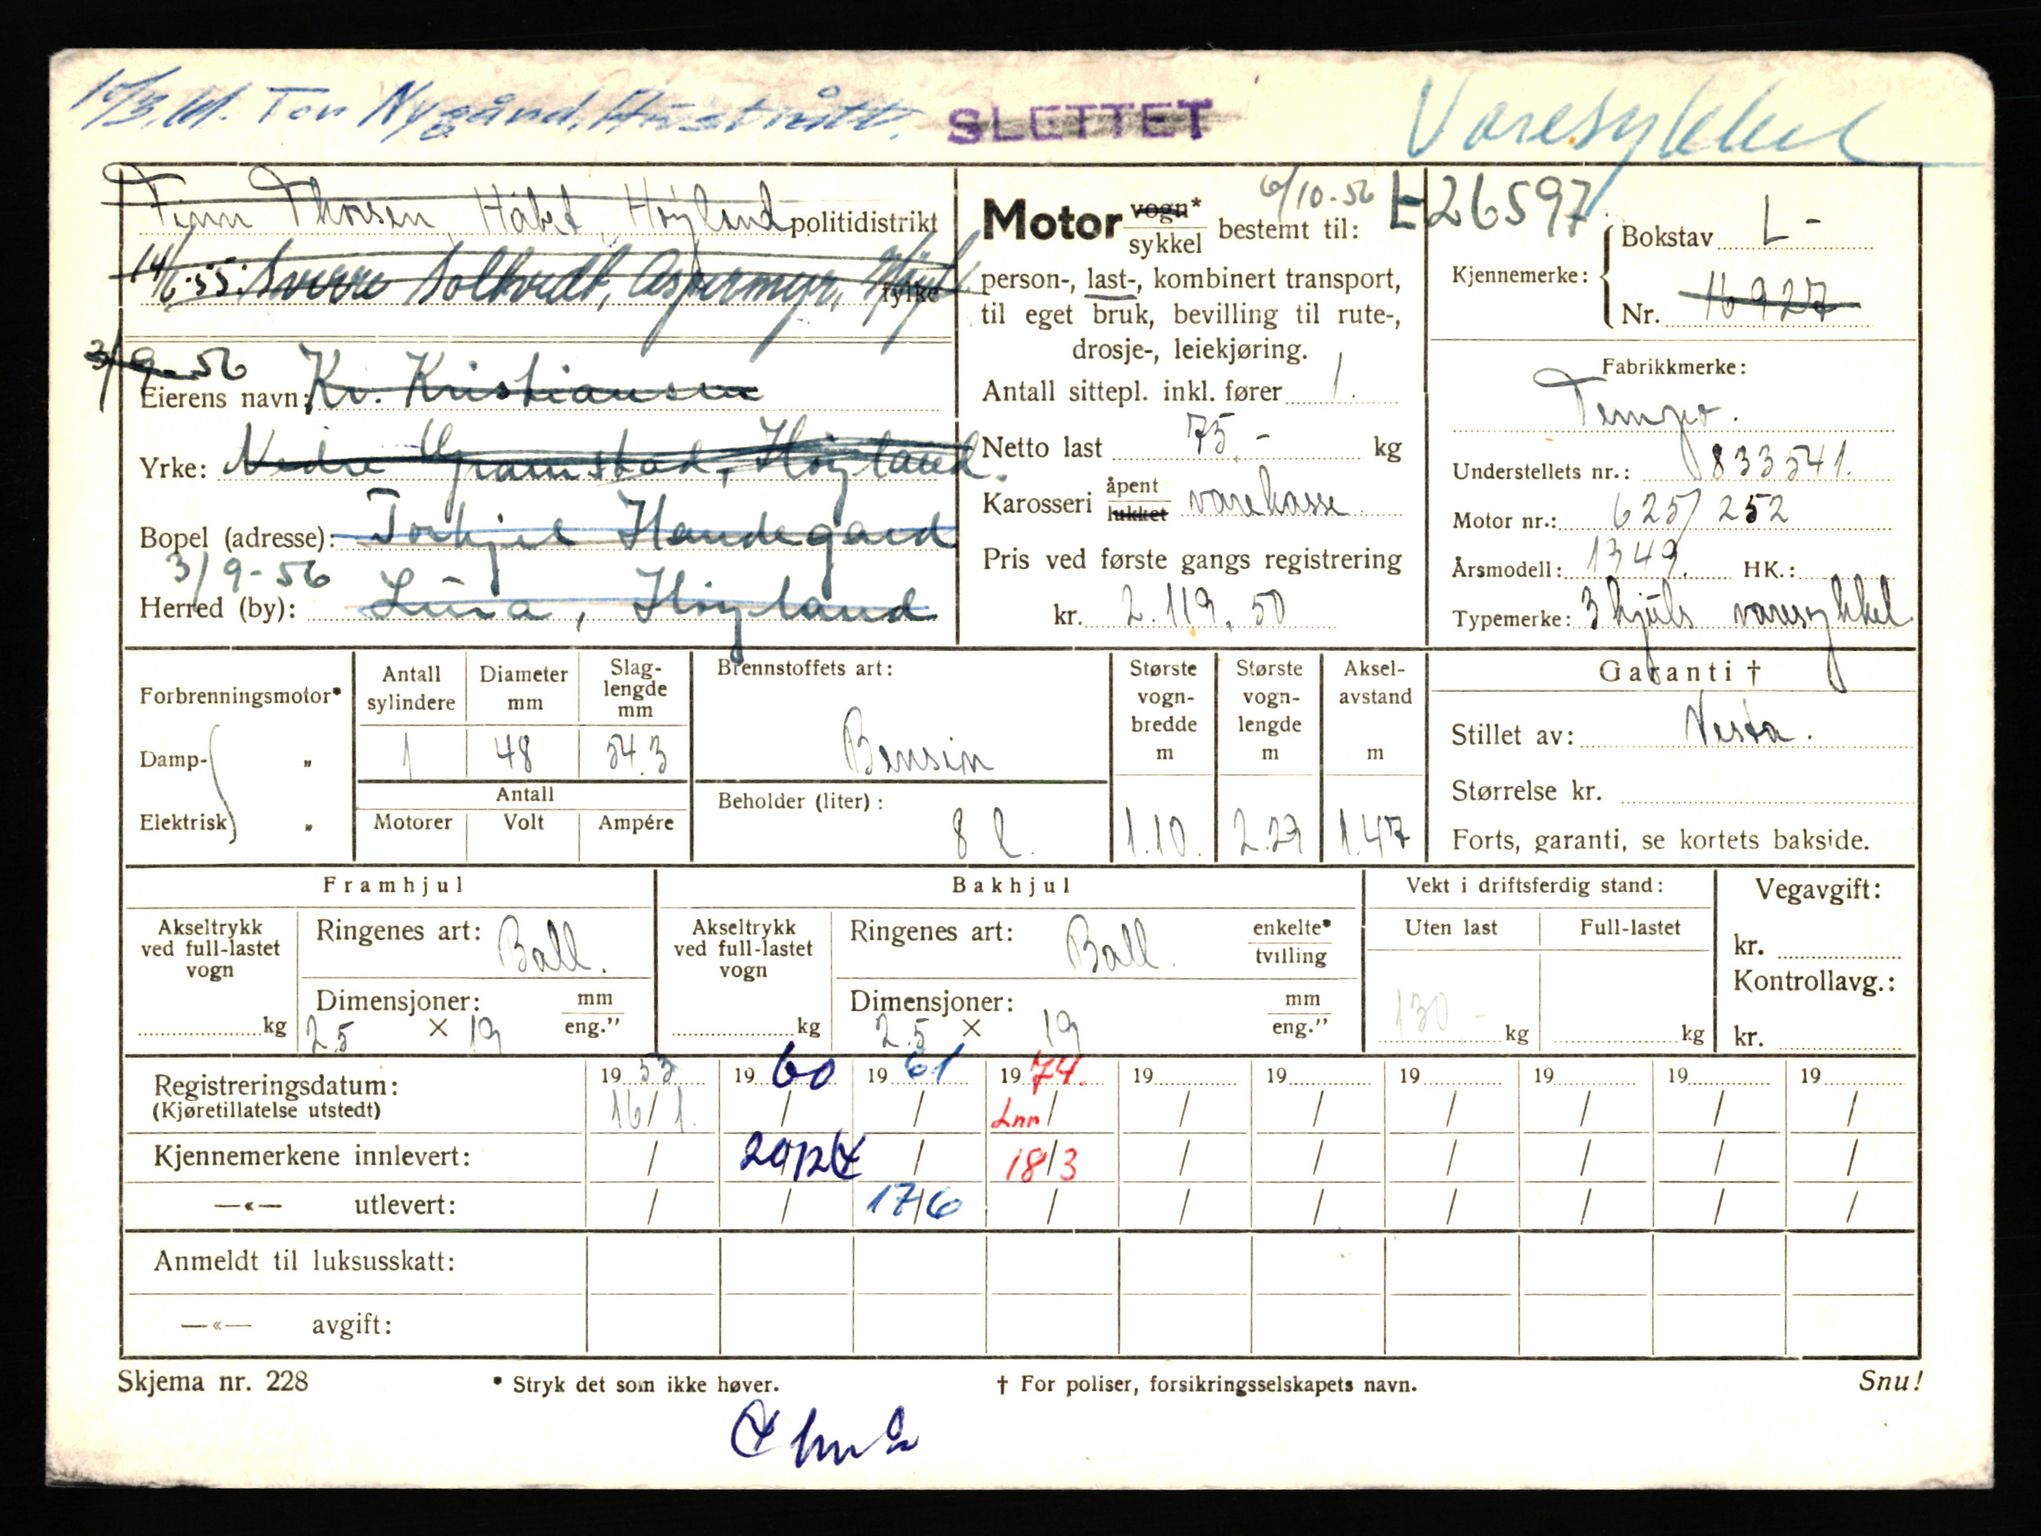 Tor Nygård, SLETTET Varesykkel
Finn Thorsen, Håbet, Høyland politidistrikt
14/6-55. Sverre Solkvedt, Aspermyr, fylke
3/9-56
Eierens navn: Kr. Kristiansen
Yrke: Nedre Gramstad, Høyland.
Bopel (adresse): Torkjel Haudegard
3/9-56
Herred (by): Lura, Høyland
6/10-56 L-26597
Motor vogn* sykkel bestemt til:
person-, last-, kombinert transport,
til eget bruk, bevilling til rute-,
drosje-, leiekjøring.
Antall sittepl. inkl. fører 1.
Netto last 75.- kg
Karosseri åpent lukket varekasse
Pris ved første gangs registrering
kr. 2.119.50
Kjennemerke: Bokstav L-
Nr. 16927
Fabrikkmerke:
Tempo.
Understellets nr.: 833541.
Motor nr.: 625/252
Årsmodell: 1949. HK.:
Typemerke: 3 hjuls varesykkel
Forbrenningsmotor*
Damp- "
Elektrisk "
Antall sylindere Diameter mm Slag-lengde mm
1 48 54.3
Antall
Motorer Volt Ampére
Brennstoffets art:
Bensin
Beholder (liter):
8 l.
Største vogn-bredde m 1.10.
Største vogn-lengde m
Aksel-avstand m 1.47
Garanti †
Stillet av: Vesta.
Størrelse kr.
Forts, garanti, se kortets bakside.
Framhjul
Akseltrykk ved full-lastet vogn kg
Ringenes art: Ball.
Dimensjoner: mm eng."
2.5 × 19
Bakhjul
Akseltrykk ved full-lastet vogn kg
Ringenes art: Ball. enkelte* tvilling
Dimensjoner: mm eng."
2.5 × 19
Vekt i driftsferdig stand:
Uten last Full-lastet
130- kg kg
Vegavgift:
kr.
Kontrollavg.:
kr.
Registreringsdatum: 1953 1960 1961 1974. 19 19 19 19 19 19
(Kjøretillatelse utstedt) 16/1. / / Lnn/ / / / / / /
Kjennemerkene innlevert: / 20/12 / 18/3 / / / / / /
—«— utlevert: / / 17/6 / / / / / / /
Anmeldt til luksusskatt:
—«— avgift:
Skjema nr. 228 * Stryk det som ikke høver. † For poliser, forsikringsselskapets navn. Snu!